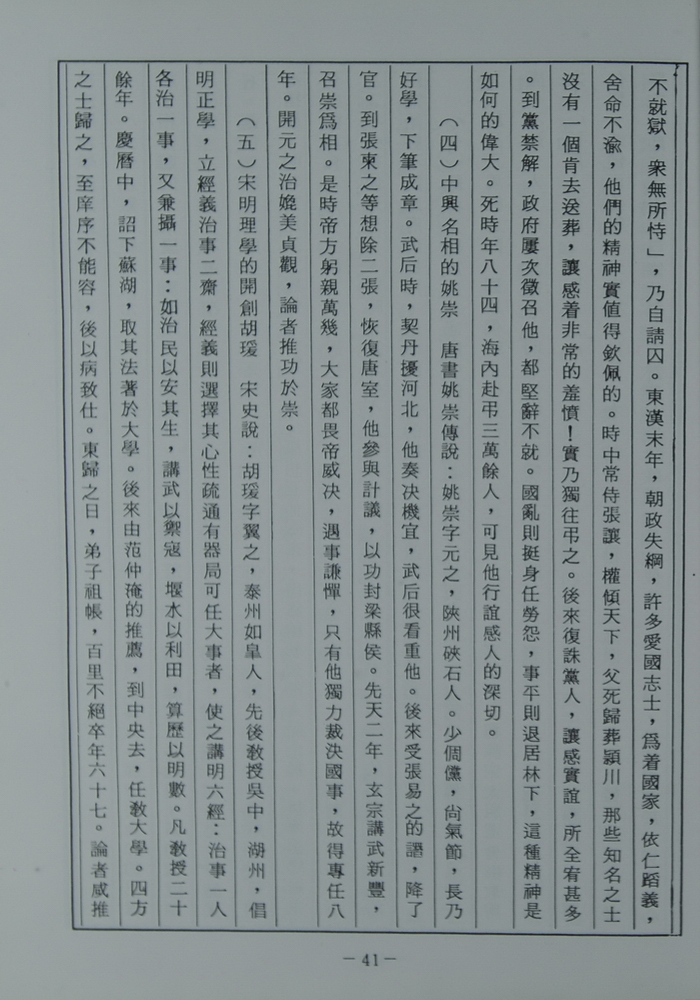 不就獄，衆無所恃」，乃自請囚。東漢末年，朝政失綱，許多愛國志士，爲着國家，依仁蹈義，
舍命不渝，他們的精神實值得欽佩的。時中常侍張讓，權傾天下，父死歸葬潁川，那些知名之士
沒有一個肯去送葬，讓感着非常的羞憤！實乃獨往弔之。後來復誅黨人，讓感實誼，所全宥甚多
。到黨禁解，政府屢次徵召他，都堅辭不就。國亂則挺身任勞怨，事平則退居林下，這種精神是
如何的偉大。死時年八十四，海內赴弔三萬餘人，可見他行誼感人的深切。
（四）中興名相的姚崇　唐書姚崇傳說：姚崇字元之，陝州硤石人。少倜儻，尙氣節，長乃
好學，下筆成章。武后時，契丹擾河北，他奏决機宜，武后很看重他。後來受張易之的譖，降了
官。到張柬之等想除二張，恢復唐室，他參與計議，以功封梁縣侯。先天二年，玄宗講武新豐，
召崇爲相。是時帝方躬親萬幾，大家都畏帝威决，遇事謙憚，只有他獨力裁決國事，故得專任八
年。開元之治媲美貞觀，論者推功於崇。
（五）宋明理學的開創胡瑗　宋史說：胡瑗字翼之，泰州如皐人，先後敎授吳中，湖州，倡
明正學，立經義治事二齋，經義則選擇其心性疏通有器局可任大事者，使之講明六經：治事一人
各治一事，又兼攝一事：如治民以安其生，講武以禦寇，堰水以利田，算歷以明數。凡敎授二十
餘年。慶曆中，詔下蘇湖，取其法著於大學。後來由范仲淹的推薦，到中央去，任敎大學。四方
之士歸之，至庠序不能容，後以病致仕。東歸之日，弟子祖帳，百里不絕卒年六十七。論者咸推
－41－